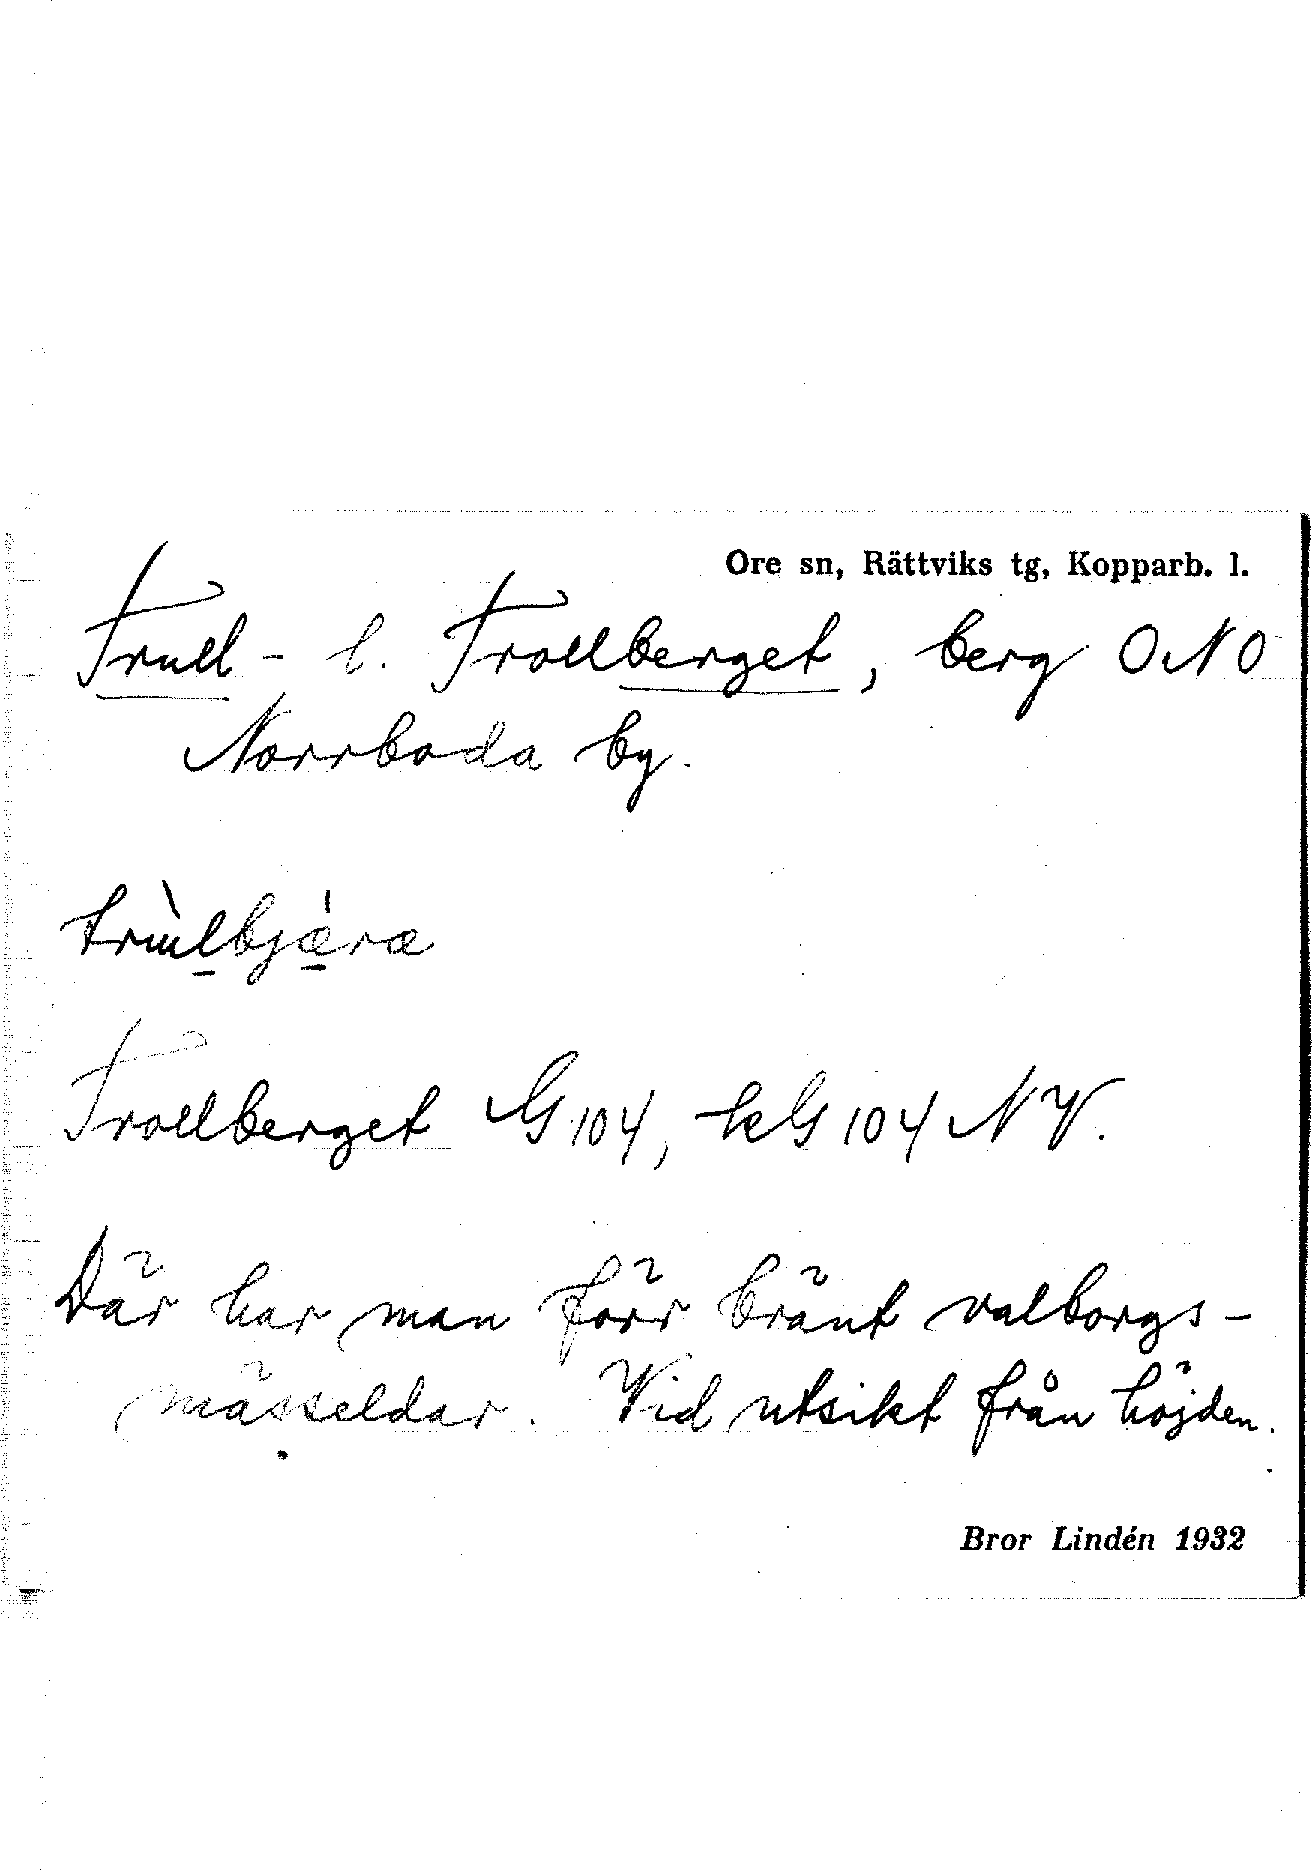 Ore sn, Rättviks tg, Kopparb. l.
Trull- l. Trollberget, berg ONO
Norrboda by.
trùlbjæ̀ra
Trollberget G 104, kG 104 NV.
Där har man förr bränt valborgs-
mässeldar. Vid utsikt från höjden.
Bror Lindén 1932